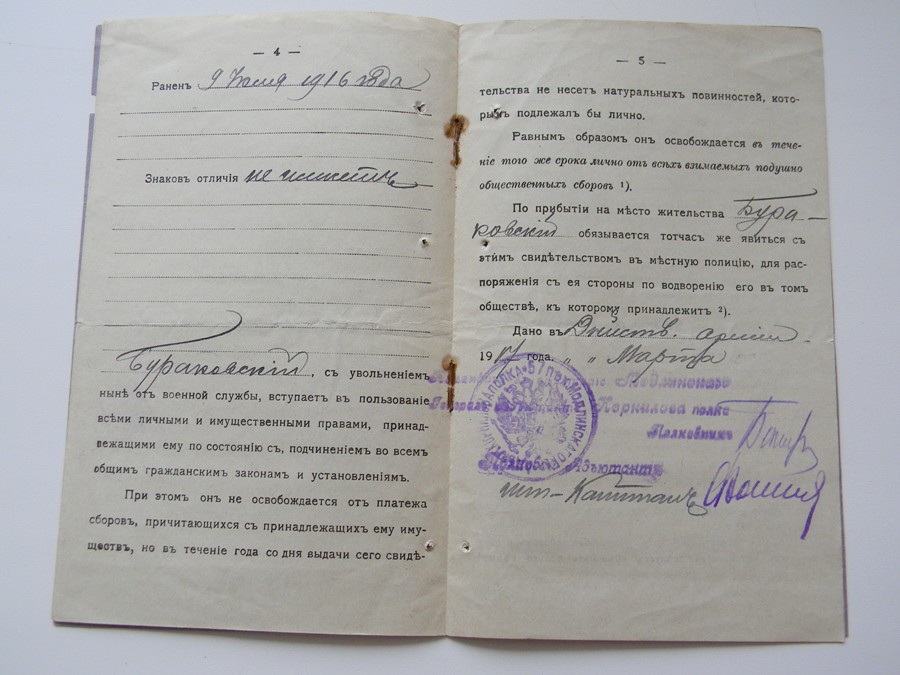 — 4 —
Раненъ 9 Іюля 1916 года
Знаковъ отличія не имѣетъ
Бураковскій, съ увольненіемъ
нынѣ отъ военной службы, вступаетъ въ пользованіе
всѣми личными и имущественными правами, принад-
лежащими ему по состоянію съ, подчиненіемъ во всемъ
общимъ гражданскимъ законамъ и установленіямъ.
При этомъ онъ не освобождается отъ платежа
сборовъ, причитающихся съ принадлежащихъ ему иму-
ществъ, но въ теченіе года со дня выдачи сего свидѣ-
— 5 —
тельства не несетъ натуральныхъ повинностей, кото-
рымъ подлежалъ бы лично.
Равнымъ образомъ онъ освобождается въ тече-
ніе того же срока лично отъ всѣхъ взимаемыхъ подушно
общественныхъ сборовъ ¹).
По прибытіи на мѣсто жительства Бура-
ковскій обязывается тотчасъ же явиться съ
этимъ свидѣтельствомъ въ мѣстную полицію, для рас-
поряженія съ ея стороны по водворенію его въ томъ
обществѣ, къ которому принадлежитъ ²).
Дано въ Дѣйств. арміи.
1917 года. „ „ Марта
Модлинскаго
Генерала Корнилова полка
Полковникъ
Полковой Адъютантъ
шт-Капитанъ